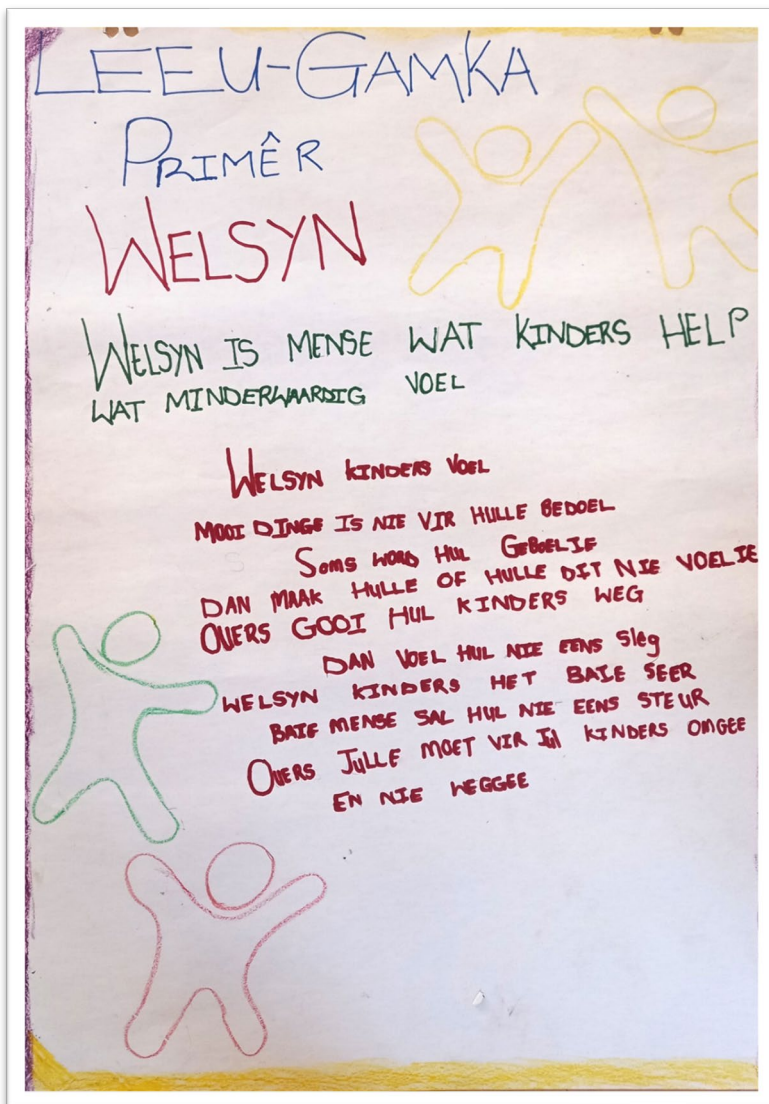 LEEU-GAMKA
PRIMÊR
WELSYN
WELSYN IS MENSE WAT KINDERS HELP
WAT MINDERWAARDIG VOEL
WELSYN KINDERS VOEL
MOOI DINGE IS NIE VIR HULLE BEDOEL
SOMS WORD HUL GEBOELIE
DAN MAAK HULLE OF HULLE DIT NIE VOEL IE
OUERS GOOI HUL KINDERS WEG
DAN VOEL HUL NIE EENS Sleg
WELSYN KINDERS HET BAIE SEER
BAIE MENSE SAL HUL NIE EENS STEUR
OUERS JULLE MOET VIR KINDERS OMGEE
EN NIE WEGGEE